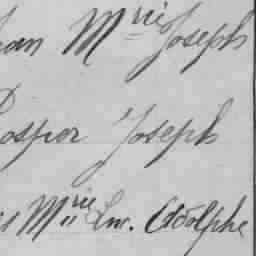 Jean M^rie Joseph
Prosper Joseph
M^rie Lse. Adolphe